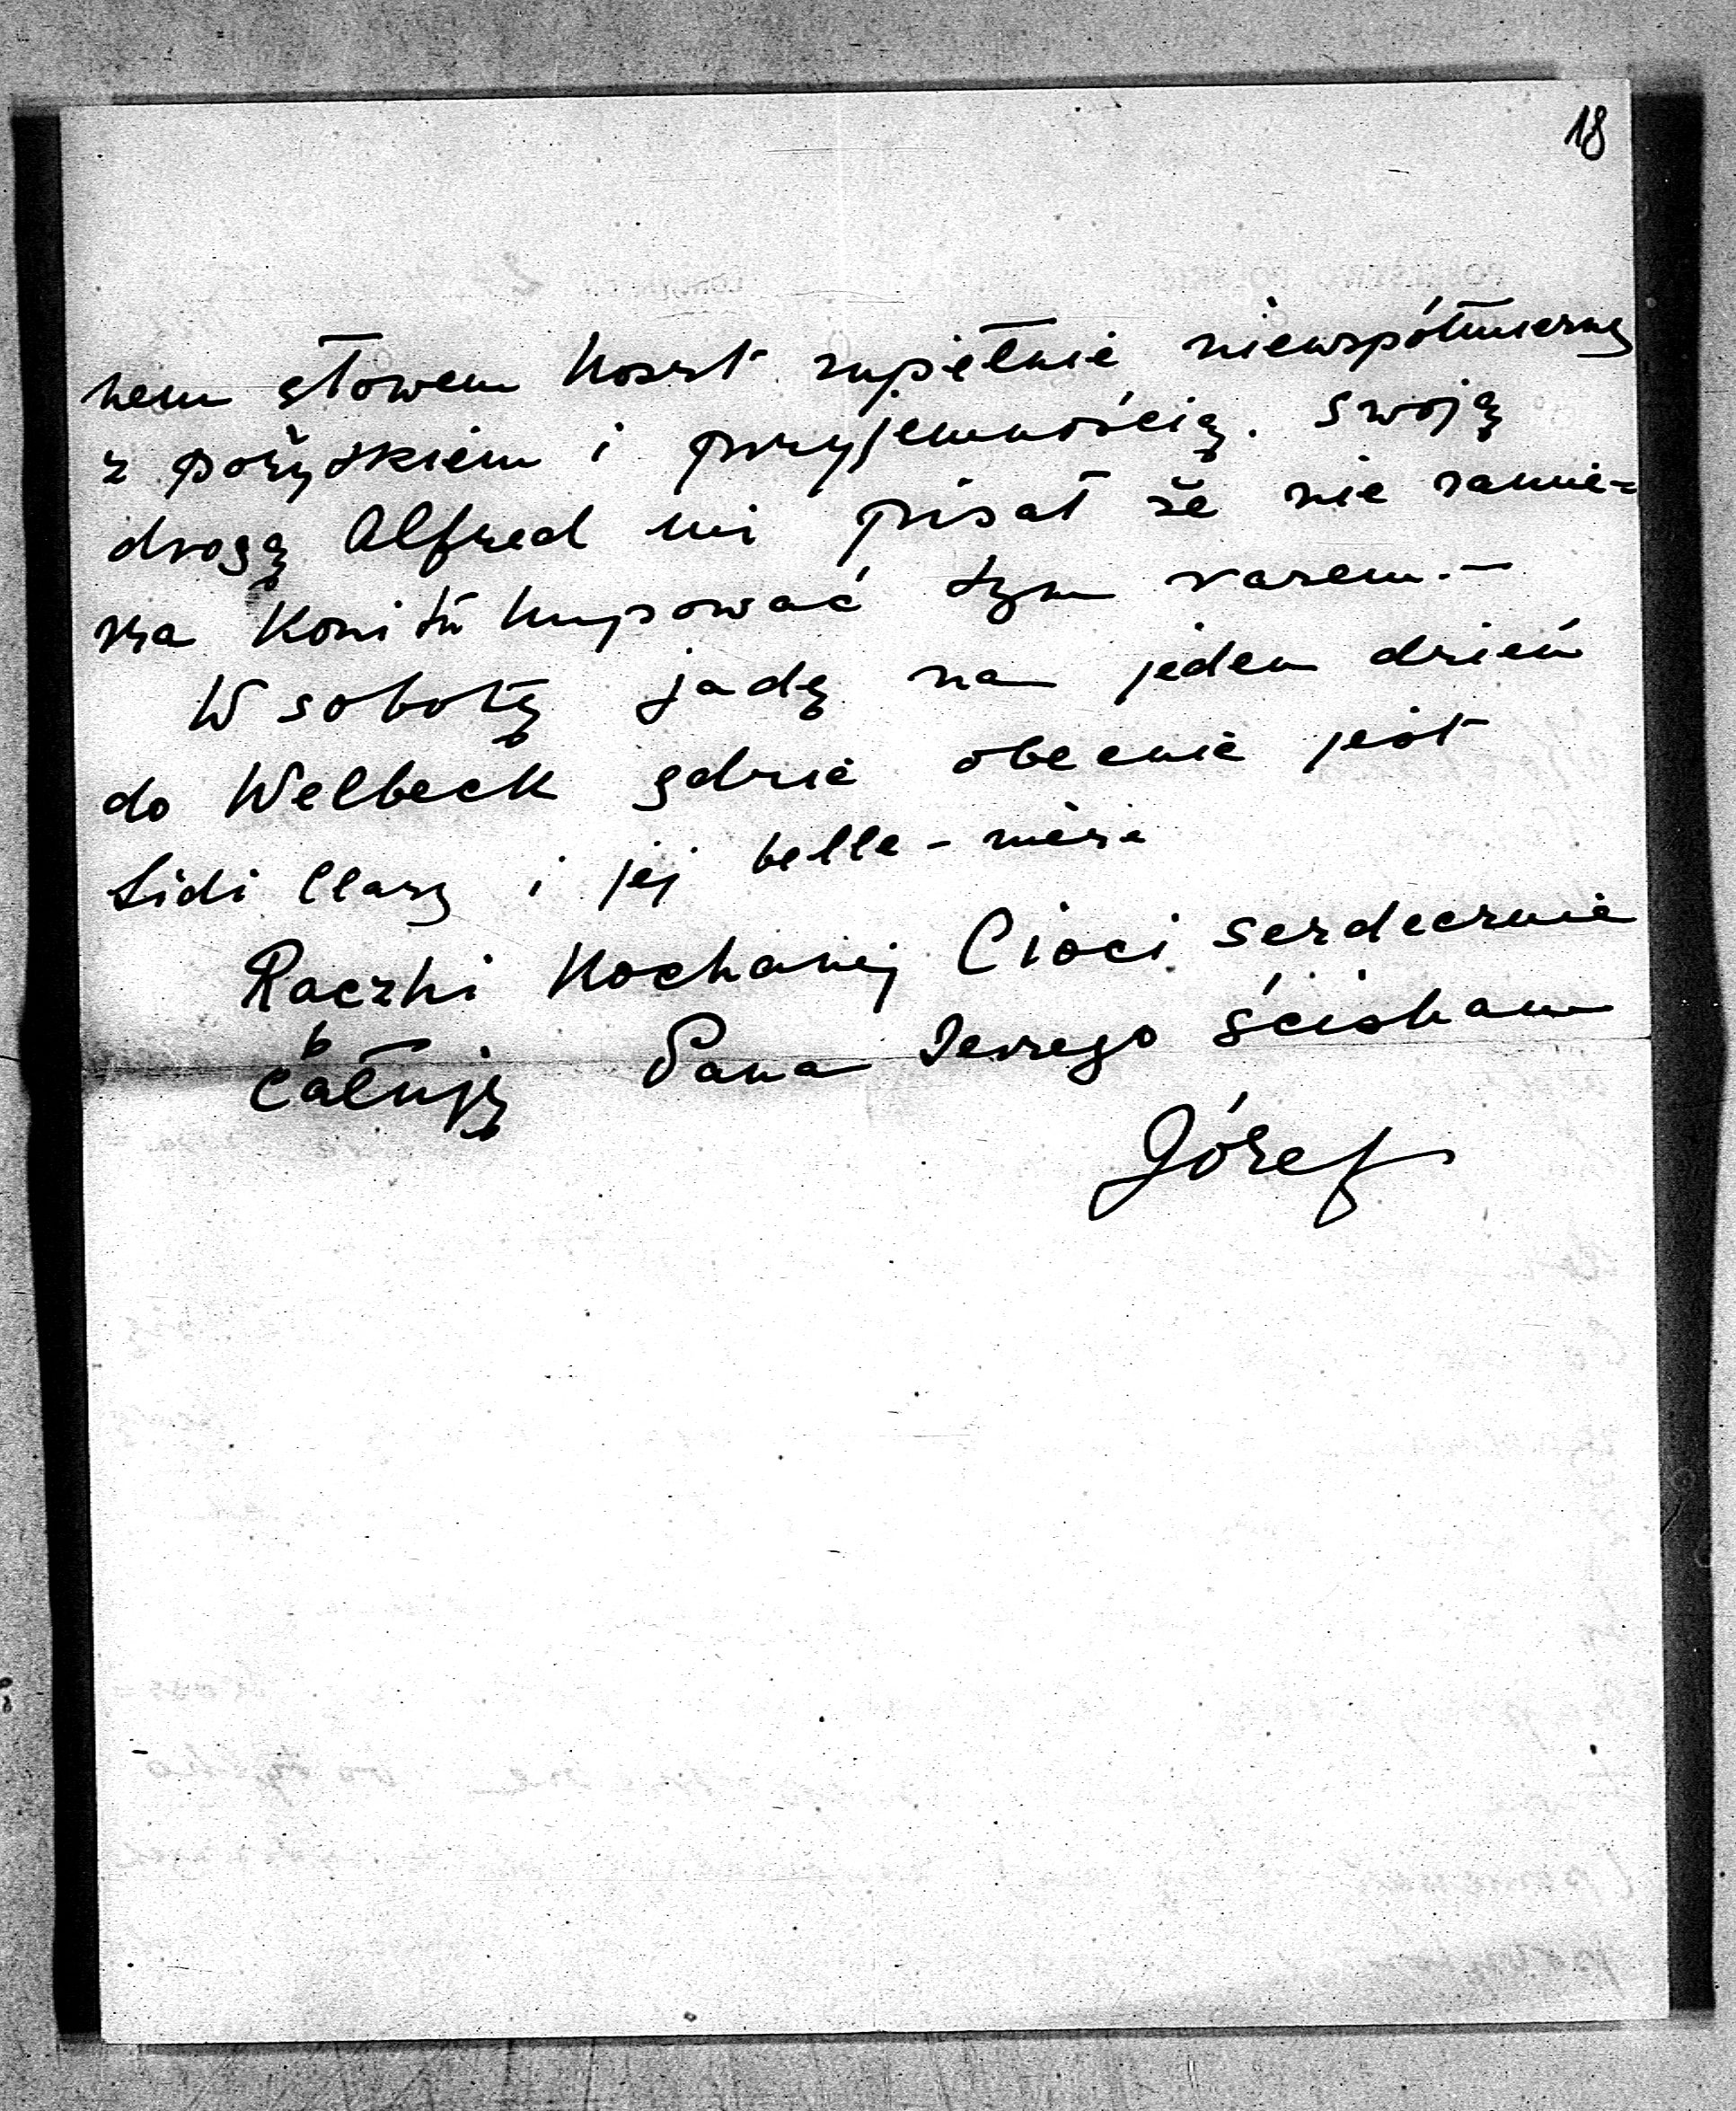 18
nem słowem koszt zupełnie niewspółmierny
z pożytkiem i przyjemnością. Swoją
drogą Alfred mi pisał że nie zamie=
rza koni tu kupować tym razem. —
W sobotę jadę na jeden dzień
do Welbeck gdzie obecnie jest
Sidi Clary i jej belle-mère
Rączki Kochanej Cioci serdecznie
b
całuję Pana Jerzego ściskam
Józef